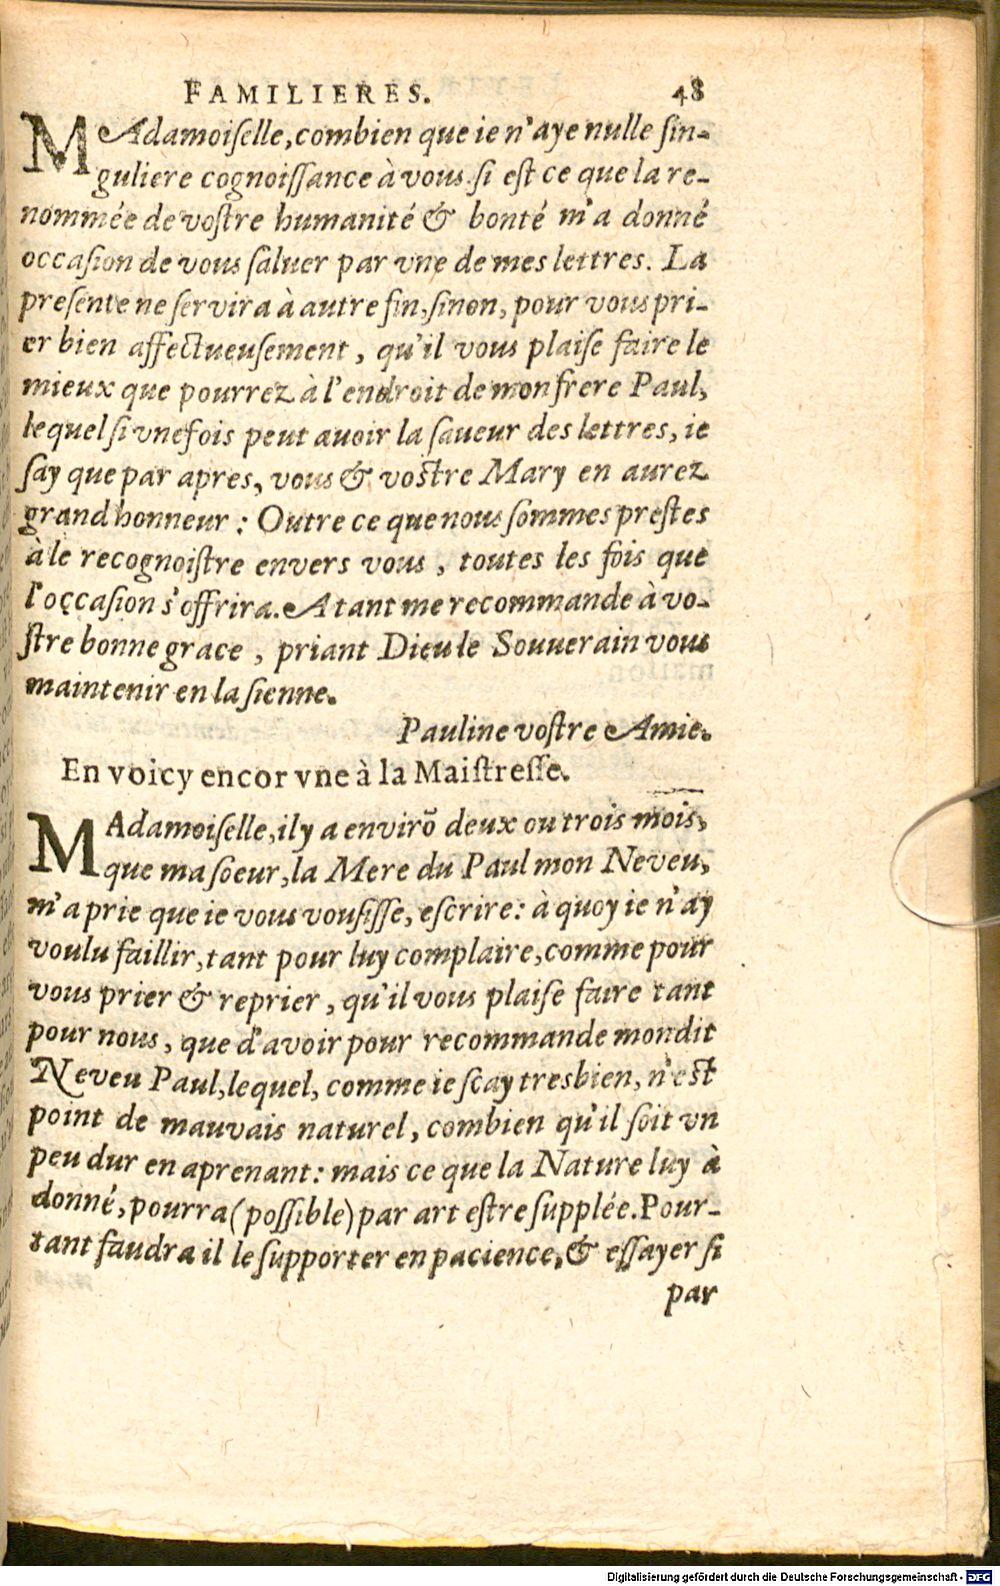 FAMILIERES. 48
MAdamoiſelle, combien que ie n'aye nulle ſin-
guliere cognoiſſance à vous. ſi eſt ce que la re-
nommée de voſtre humanité & bonté m'a donné
occaſion de vous ſaluer par vne de mes lettres. La
preſente ne ſervira à autre fin, ſinon, pour vous pri-
er bien affectueuſement, qu'il vous plaiſe faire le
mieux que pourrez à l'endroit de mon frere Paul,
lequel ſi vne fois peut avoir la ſaveur des lettres, ie
ſay que par apres, vous & voſtre Mary en aurez
grand honneur : Outre ce que nous ſommes preſtes
à le recognoiſtre envers vous, toutes les fois que
l'occaſion s'offrira. A tant me recommande à vo-
ſtre bonne grace, priant Dieu le Souuerain vous
maintenir en la ſienne.
Pauline voſtre Amie.
En voicy encor vne à la Maiſtreſſe.
MAdamoiſelle, il y a envirõ deux ou trois mois,
que ma soeur, la Mere du Paul mon Neveu,
m'a prie que ie vous vouſiſſe, eſcrire: à quoy ie n'ay
voulu faillir, tant pour luy complaire, comme pour
vous prier & reprier, qu'il vous plaiſe faire tant
pour nous, que d'avoir pour recommande mondit
Neveu Paul, lequel, comme ie ſcay tresbien, n'eſt
point de mauvais naturel, combien qu'il ſoit vn
peu dur en aprenant: mais ce que la Nature luy à
donné, pourra (poſſible) par art eſtre ſupplée. Pour-
tant faudra il le ſupporter en pacience, & eſſayer ſi
par
Digitalisierung gefördert durch die Deutsche Forschungsgemeinschaft - DFG